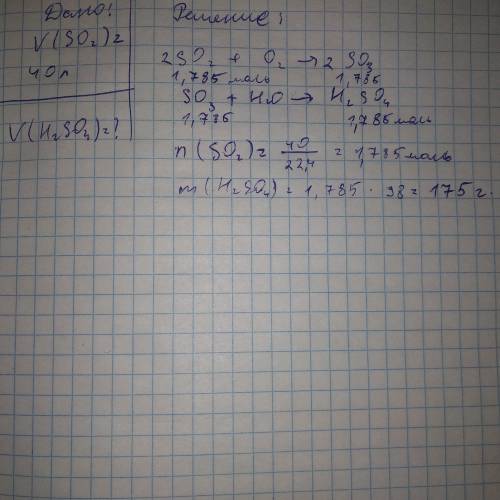 Дано:
V(SO₂)=
40 л
V(H₂SO₄)=?
Решение:
2SO₂ + O₂ → 2 SO₃
1,785 моль 1,785
SO₃ + H₂O → H₂SO₄
1,785 1,785 моль
n(SO₂) = 40/22,4 = 1,785 моль
m(H₂SO₄) = 1,785 · 98 = 175 г.